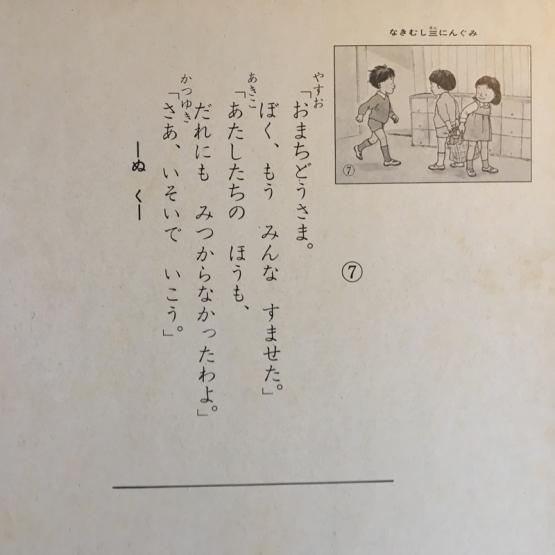 なきむし三にんぐみ
さん
⑦
⑦
やすお
「おまちどうさま。
ぼく、もう みんな すませた。」
あきこ
「あたしたちの ほうも、
だれにも みつからなかったわよ。」
かつゆき
「さあ、いそいで いこう。」
―ぬ く―